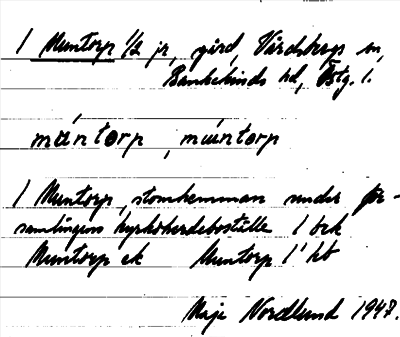 1 Muntorp 1/2 jr, gård, Vårdsbergs sn,
Bankekinds hd, Östg. l.
mántorp, múntorp
1 Muntorp, stomhemman under för-
samlingens kyrkoherdeboställe 1 öck
Muntorp ek Muntorp 1' hb
Maje Nordlund 1947.